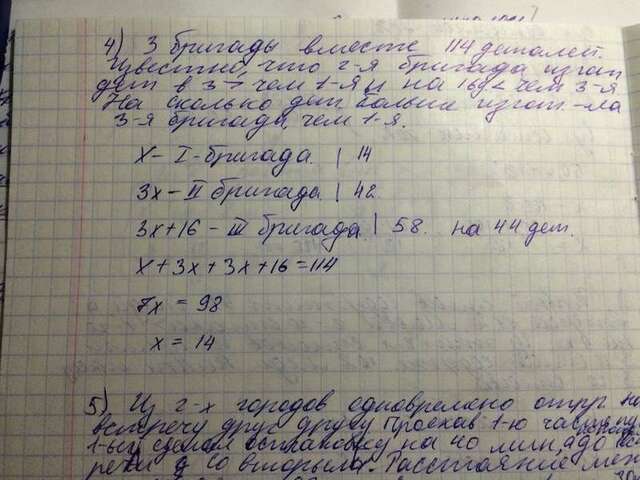 4) 3 бригады вместе 114 деталей.
Известно, что 2-я бригада изгот
дет в 3 > чем 1-я и на 16 < чем 3-я
На сколько дет. больше изгот.-ла
3-я бригада, чем 1-я.
X - I - бригада. | 14
3x - II бригада | 42
3x+16 - III бригада | 58. на 44 дет.
X + 3x + 3x + 16 = 114
7x = 98
x = 14
5) Из 2-х городов одновремено отпр.
встречу друг другу Проехав 1-ю часть
1-ый сделал остановку на 40 мин, а до
речи со вторым. Расстояние меж